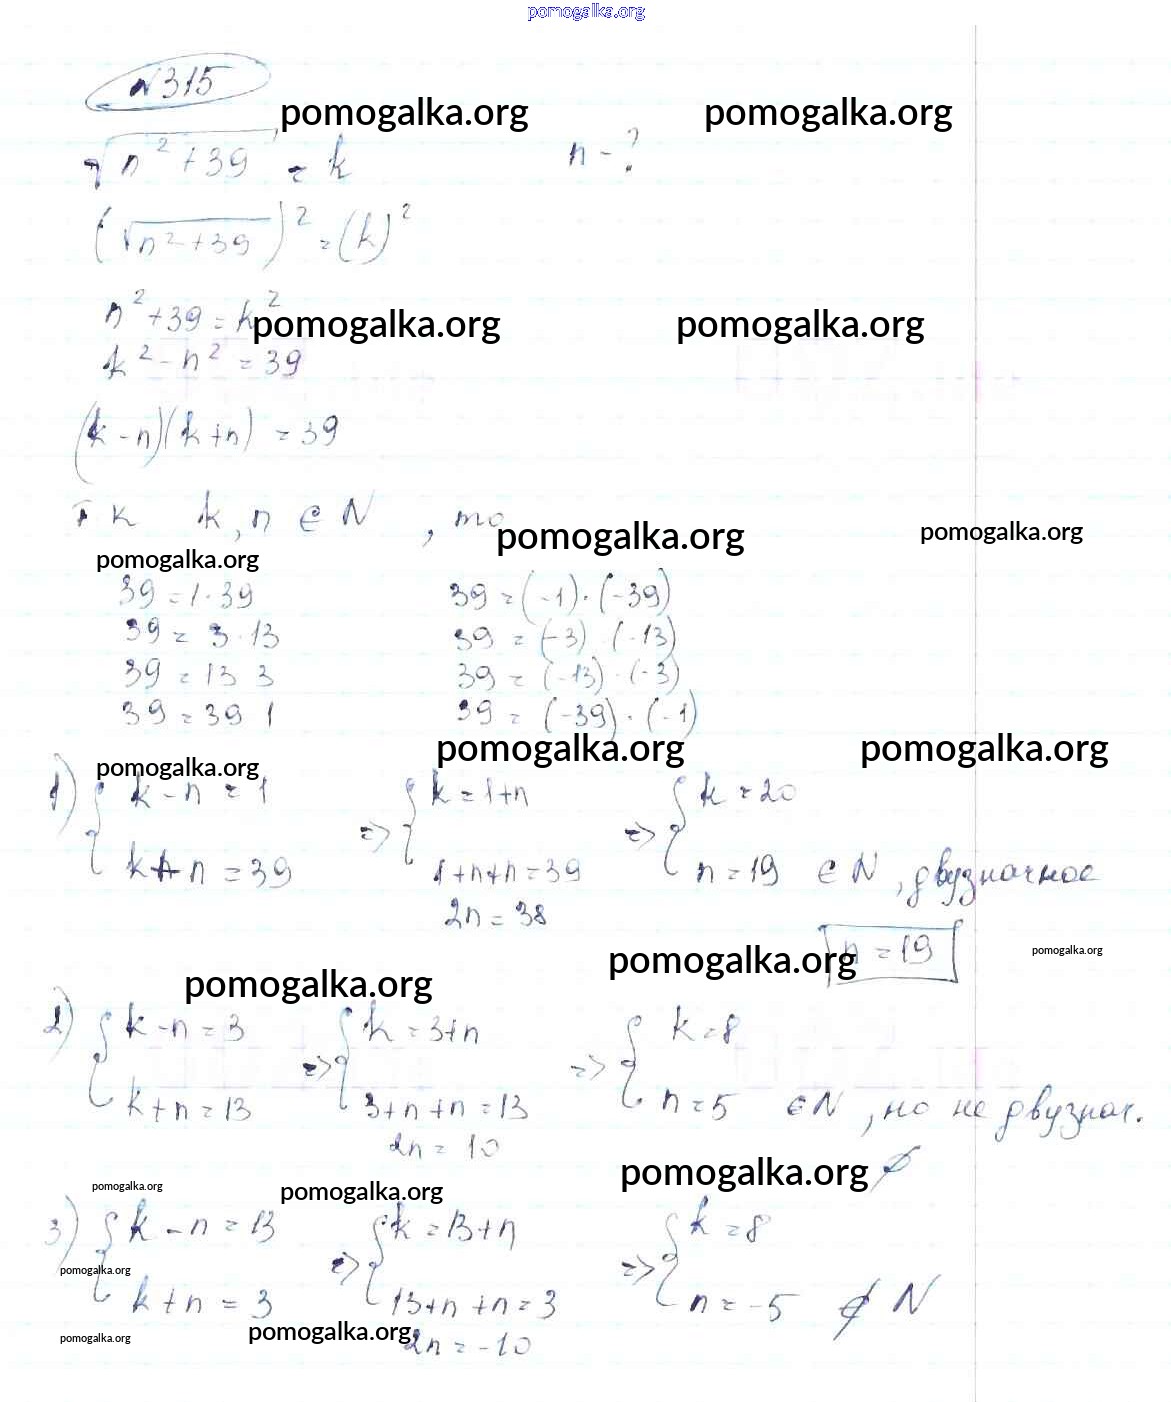 pomogalka.org
№315
pomogalka.org pomogalka.org
√n²+39 = k n - ?
(√n²+39)² = (k)²
n²+39 = k²
pomogalka.org pomogalka.org
k² - n² = 39
(k-n)(k+n) = 39
т к k, n ∈ N , то
pomogalka.org pomogalka.org
pomogalka.org
39 = 1 · 39 39 = (-1) · (-39)
39 = 3 · 13 39 = (-3) · (-13)
39 = 13 3 39 = (-13) · (-3)
39 = 39 1 39 = (-39) · (-1)
pomogalka.org pomogalka.org
pomogalka.org
1) { k - n = 1 => { k = 1+n => { k = 20
k+n = 39 1+n+n = 39 n = 19 ∈ N , двузначное
2n = 38
n = 19
pomogalka.org pomogalka.org
pomogalka.org
2) { k - n = 3 => { k = 3+n => { k = 8
k+n = 13 3+n+n = 13 n = 5 ∈ N , но не двузнач.
2n = 10
pomogalka.org ∅
pomogalka.org pomogalka.org
3) { k - n = 13 => { k = 13+n => { k = 8
pomogalka.org
k+n = 3 13+n+n = 3 n = -5 ∉ N
pomogalka.org pomogalka.org
2n = -10